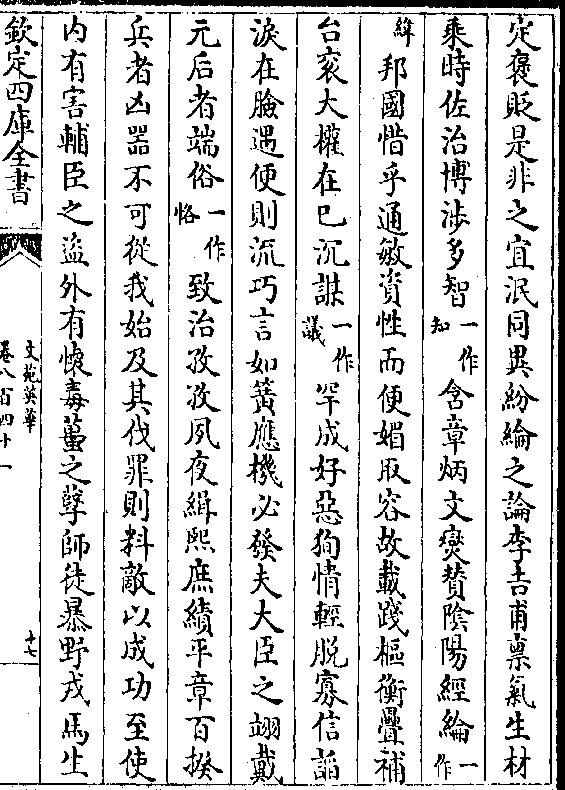 定褒貶是非之宜泯同異紛綸之論李吉甫稟氣生材
乘時佐治博涉多智一作知含章炳文爕賛隂陽經綸一作
緯邦國惜乎通敏資性而便媚取容故載踐樞衡疊補
台衮大權在已沉謀一作議罕成好惡狥情輕脱寡信謟
淚在臉遇便則流巧言如簧應機必發夫大臣之翊戴
元后者端俗一作恪致治孜孜夙夜緝熙庶績平章百揆
兵者凶噐不可從我始及其伐罪則料敵以成功至使
内有害輔臣之盗外有懐毒蠆之孽師徒暴野戎馬生
欽定四庫全書
文苑英華
卷八百四十一
十七